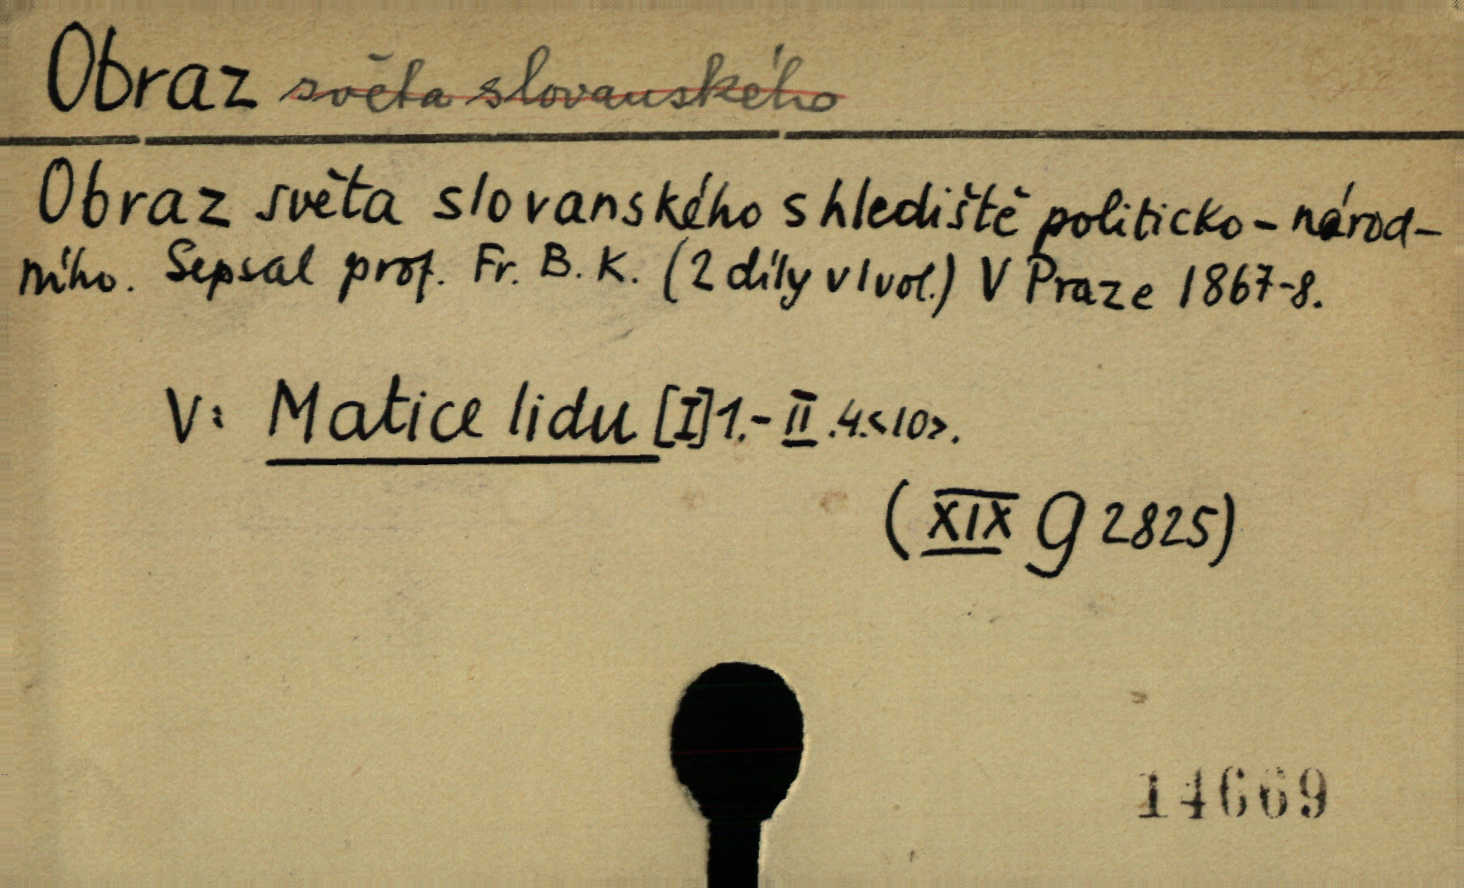 Obraz světa slovanského
Obraz světa slovanského s hlediště politicko-národ-
ního. Sepsal prof. Fr. B. K. (2 díly v 1 vol.) V Praze 1867-8.
V: Matice lidu [I] 1.- II .4.<10>.
(XIX G 2825)
14669